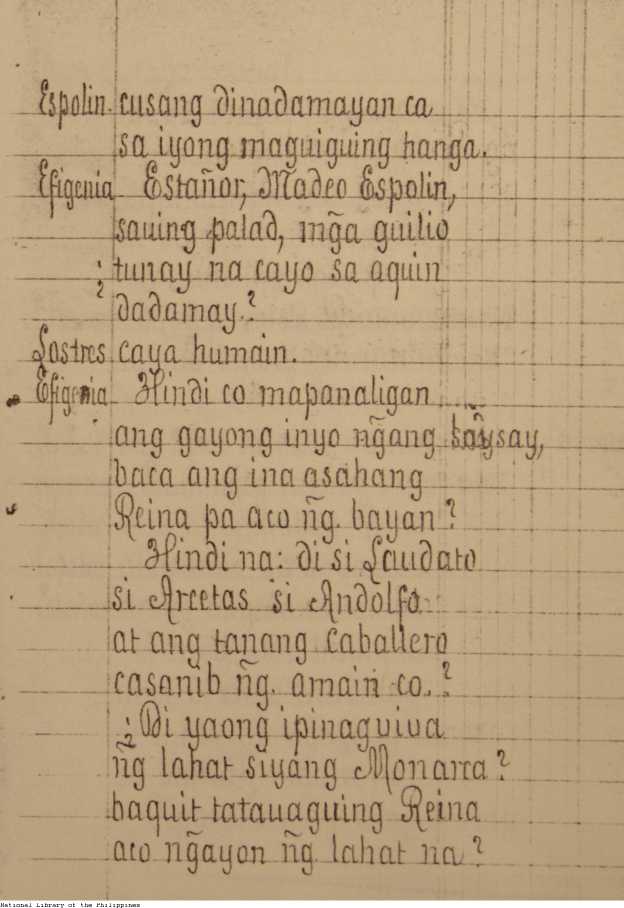 Espolin. cusang dinadamayan ca
sa iyong maguiguing hanga.
Efigenia Estañor, Madeo Espolin,
sauing palad, mg̃a guilio
¿tunay na cayo sa aquin
dadamay.?
Lostres caya humain.
Efigenia Hindi co mapanaligan
ang gayong inyo ng̃ang saysay,
baca ang ina asahang
Reina pa aco ñg. bayan?
Hindi na: di si Laudato
si Arcetas si Andolfo
at ang tanang Caballero
casanib ñg. amain co.?
¿Di yaong ipinaguiua
ñg lahat siyang Monarca?
baquit tatauaguing Reina
aco ng̃ayon ñg. lahat na?
National Library of the Philippines